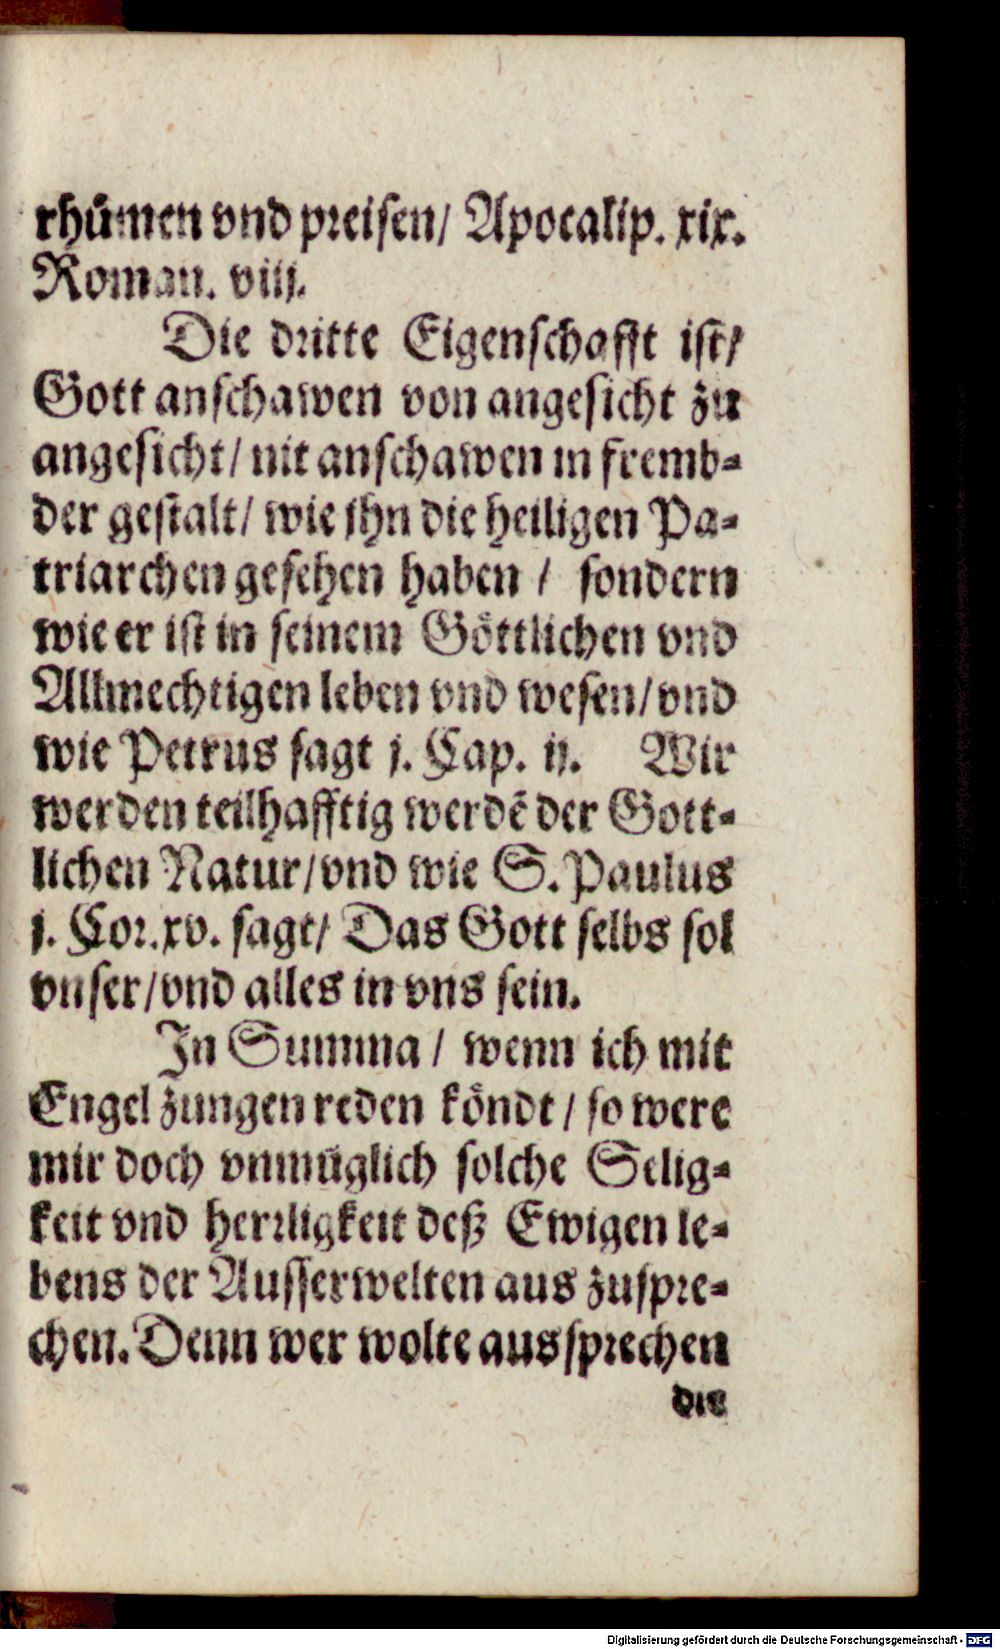 rhümen vnd preisen/ Apocalip. xix.
Roman. viij.
Die dritte Eigenschafft ist/
Gott anschawen von angesicht zu
angesicht/ nit anschawen in fremb-
der gestalt/ wie jhn die heiligen Pa-
triarchen gesehen haben / sondern
wie er ist in seinem Göttlichen vnd
Allmechtigen leben vnd wesen/ vnd
wie Petrus sagt j. Cap. ij. Wir
werden teilhafftig werdē der Gött-
lichen Natur/ vnd wie S. Paulus
j. Cor. xv. sagt/ Das Gott selbs sol
vnser/ vnd alles in vns sein.
In Summa / wenn ich mit
Engel zungen reden köndt / so were
mir doch vnmüglich solche Selig-
keit vnd herrligkeit deß Ewigen le-
bens der Ausserwelten aus zuspre-
chen. Denn wer wolte aussprechen
die
Digitalisierung gefördert durch die Deutsche Forschungsgemeinschaft - DFG